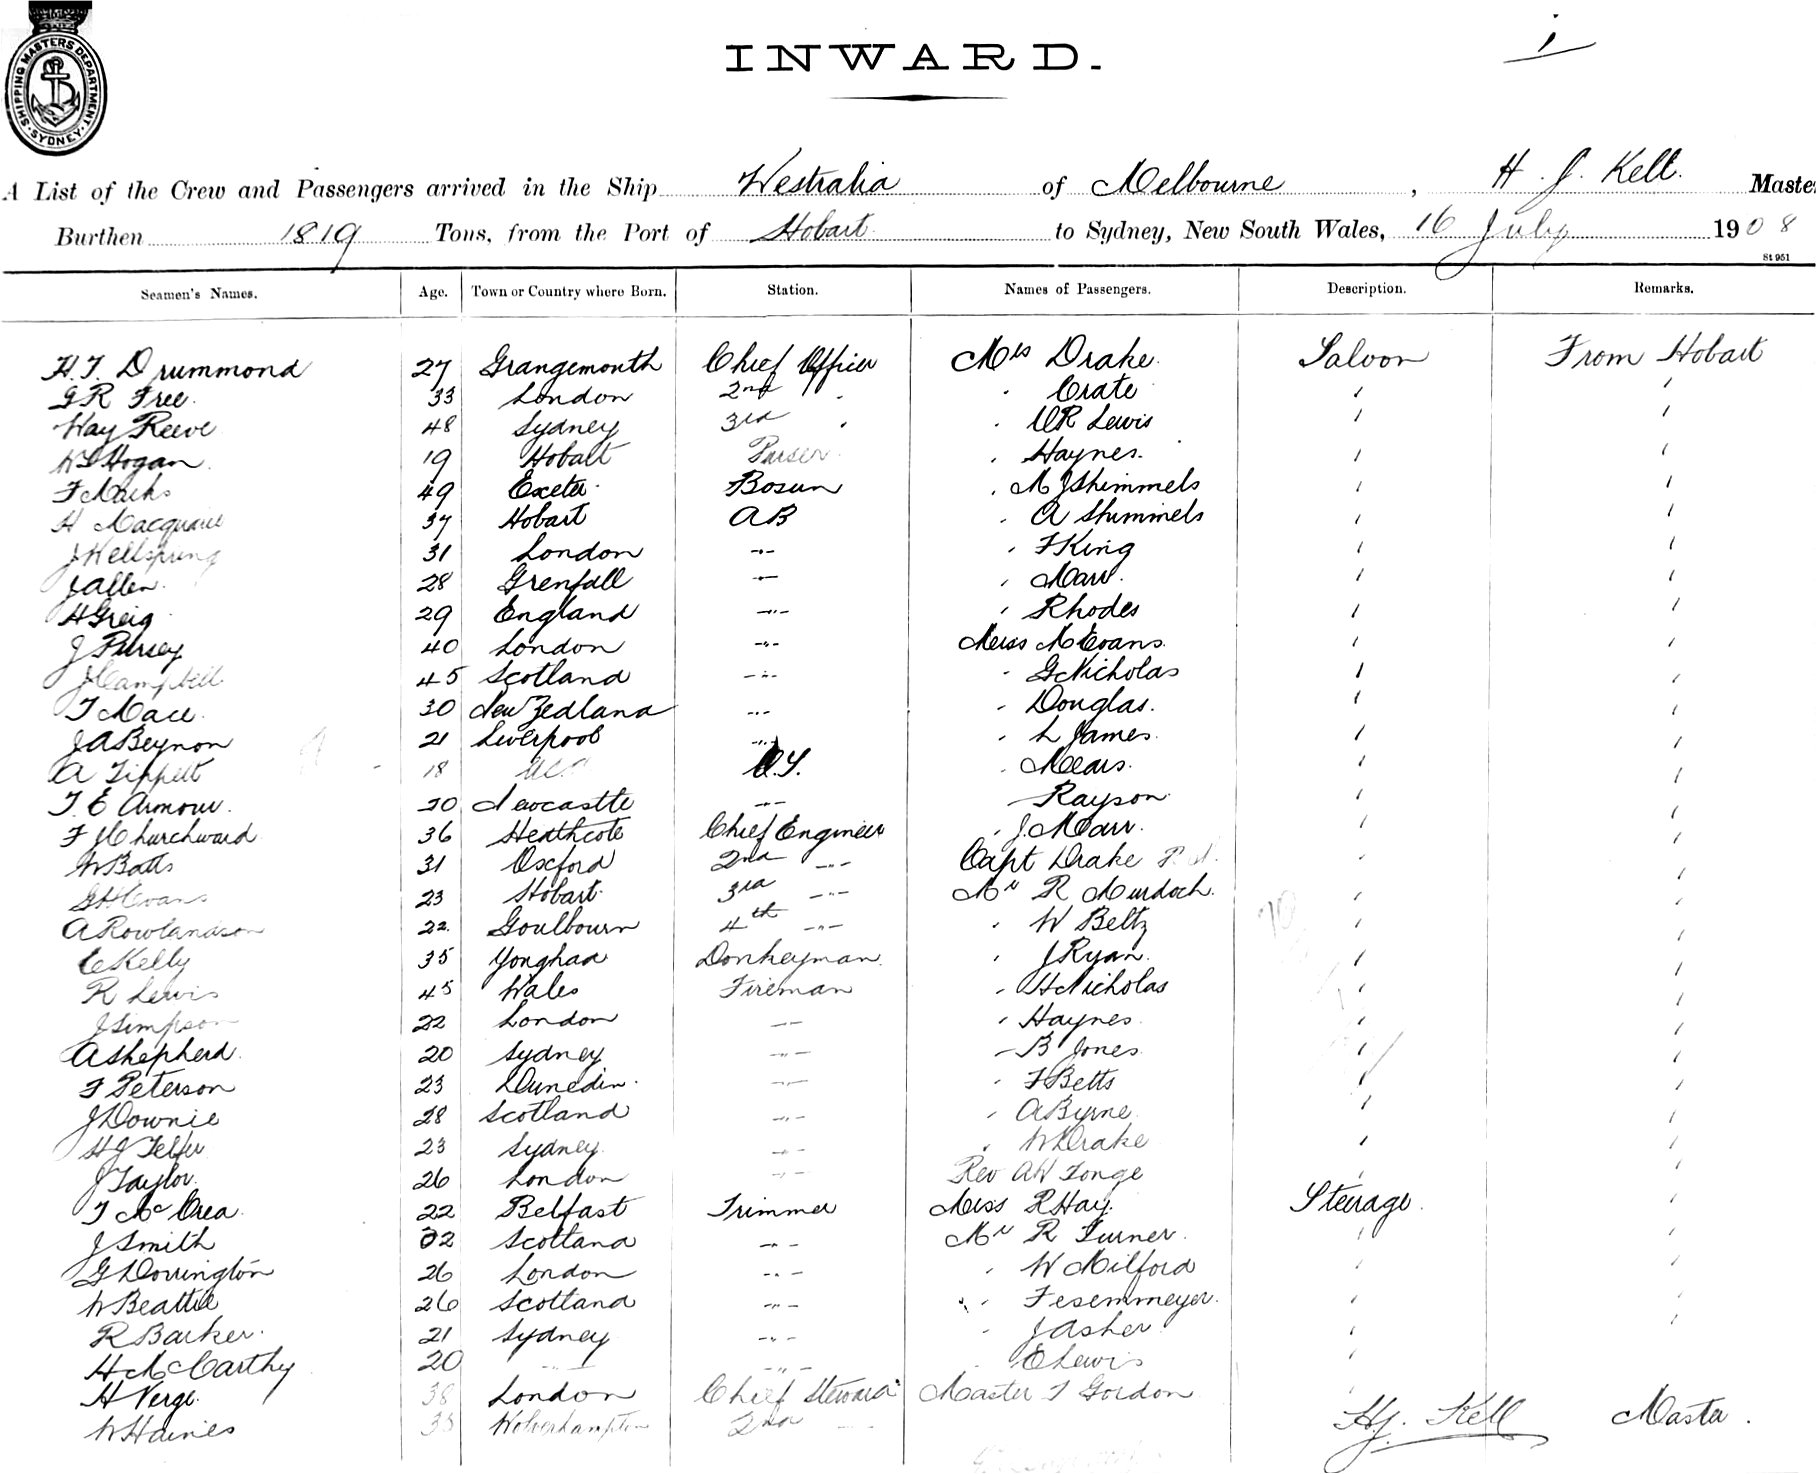 SHIPPING MASTERS DEPARTMENT · SYDNEY ·
INWARD.
1
A List of the Crew and Passengers arrived in the Ship Westralia of Melbourne, H. J. Kell. Master
Burthen 1819 Tons, from the Port of Hobart to Sydney, New South Wales, 16 July 1908
St 951
Seamen's Names. Age. Town or Country where Born. Station. Names of Passengers. Description. Remarks.
H. T. Drummond 27 Grangemouth Chief Officer Mrs Drake. Saloon From Hobart
G R Free. 33 London 2nd " " Crate " "
Hay Reeve 48 Sydney 3rd " " C R Lewis " "
Hogan. 19 Hobart Purser " Haynes. " "
F Marks 49 Exeter Bosun " M J Shimmels " "
H Macquarie 37 Hobart AB " A Shimmels " "
J Hellspring 31 London -"- " F King " "
J Allen. 28 Grenfall -"- " Marr. " "
H Greig 29 England -"- " Rhodes " "
J Pursey 40 London -"- Miss M Evans. " "
J Campbell 45 Scotland -"- " G Nicholas " "
T Mace. 30 New Zedland -"- " Douglas. " "
J A Beynon 21 Liverpool -"- " L James. " "
A Tippett 18 O.S. " Mears. " "
T. E Armour. 20 Newcastle -"- " Rayson " "
F J Churchward 36 Heathcote Chief Engineer " J. Marr. " "
W Batts 31 Oxford 2nd -"- Capt Drake " "
G H Evans 23 Hobart. 3rd -"- Mr R Murdoch. " "
A Rowlandson 22. Goulbourn 4th -"- " W Beltz " "
C Kelly 35 Yonghaa Donkeyman. " J Ryan. " "
R Lewis 45 Wales Fireman " H Nicholas " "
J Simpson 22 London -"- " Haynes " "
A Shepherd. 20 Sydney -"- " B Jones " "
F Peterson 23 Dunedin. -"- " F Betts " "
J Downie 28 Scotland -"- " A Byrne " "
H J Telfer 23 Sydney. -"- " W Drake " "
J Taylor. 26 London -"- Rev A W Tonge " "
T McCrea. 22 Belfast Trimmer Miss R Hay. Steerage. "
J Smith 32 Scotland -"- Mr R Turner. " "
G Dorrington 26 London -"- " W Milford " "
W Beattie 26 Scotland -"- " Fesemmeyer. " "
R Barker. 21 Sydney -"- " J Asher " "
H McCarthy 20 -"- -"- " E Lewis "
H Verge. 38 London Chief Steward Master T Gordon "
W Haines 33 Wolverhampton 2nd -"- H. J. Kell Master.